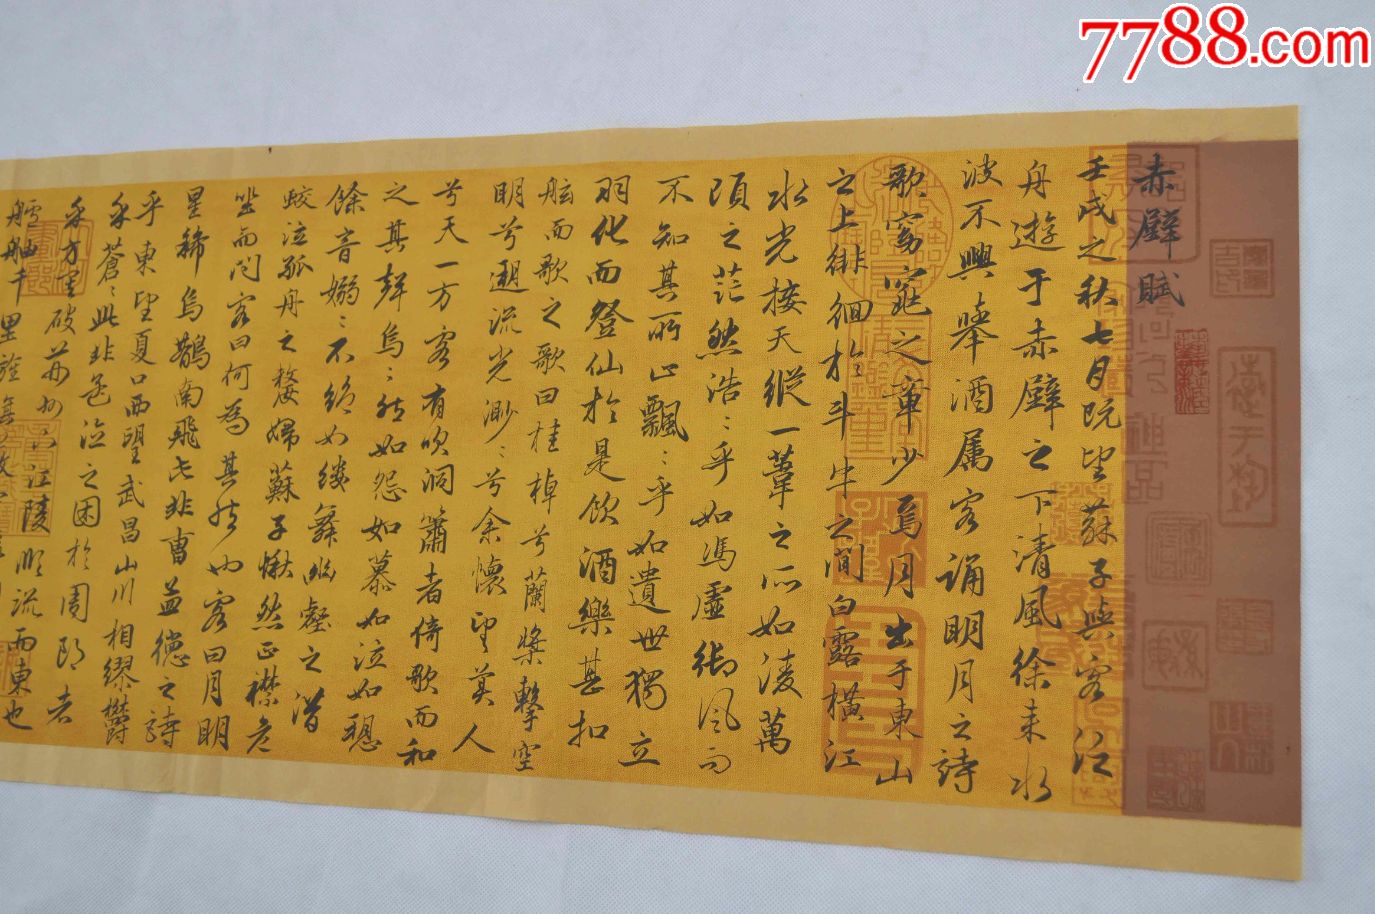 7788.com
赤壁賦
壬戌之秋七月既望蘇子與客泛
舟遊于赤壁之下清風徐来水
波不興舉酒属客誦明月之詩
歌窈窕之章少焉月出于東山
之上徘徊於斗牛之間白露横江
水光接天縱一葦之所如凌萬
頃之茫然浩〻乎如馮虚御風而
不知其所止飄〻乎如遺世獨立
羽化而登仙於是飲酒樂甚扣
舷而歌之歌曰桂棹兮蘭槳擊空
明兮遡流光渺〻兮余懷望美人
兮天一方客有吹洞簫者倚歌而和
之其聲烏〻然如怨如慕如泣如愬
餘音嫋〻不絶如縷舞幽壑之潜
蛟泣孤舟之嫠婦蘇子愀然正襟危
坐而問客曰何為其然也客曰月明
星稀烏鵲南飛此非曹孟德之詩
乎東望夏口西望武昌山川相繆欝
乎蒼〻此非孟德之困於周郎者
乎方其破荊州下江陵順流而東也
艫舳千里旌